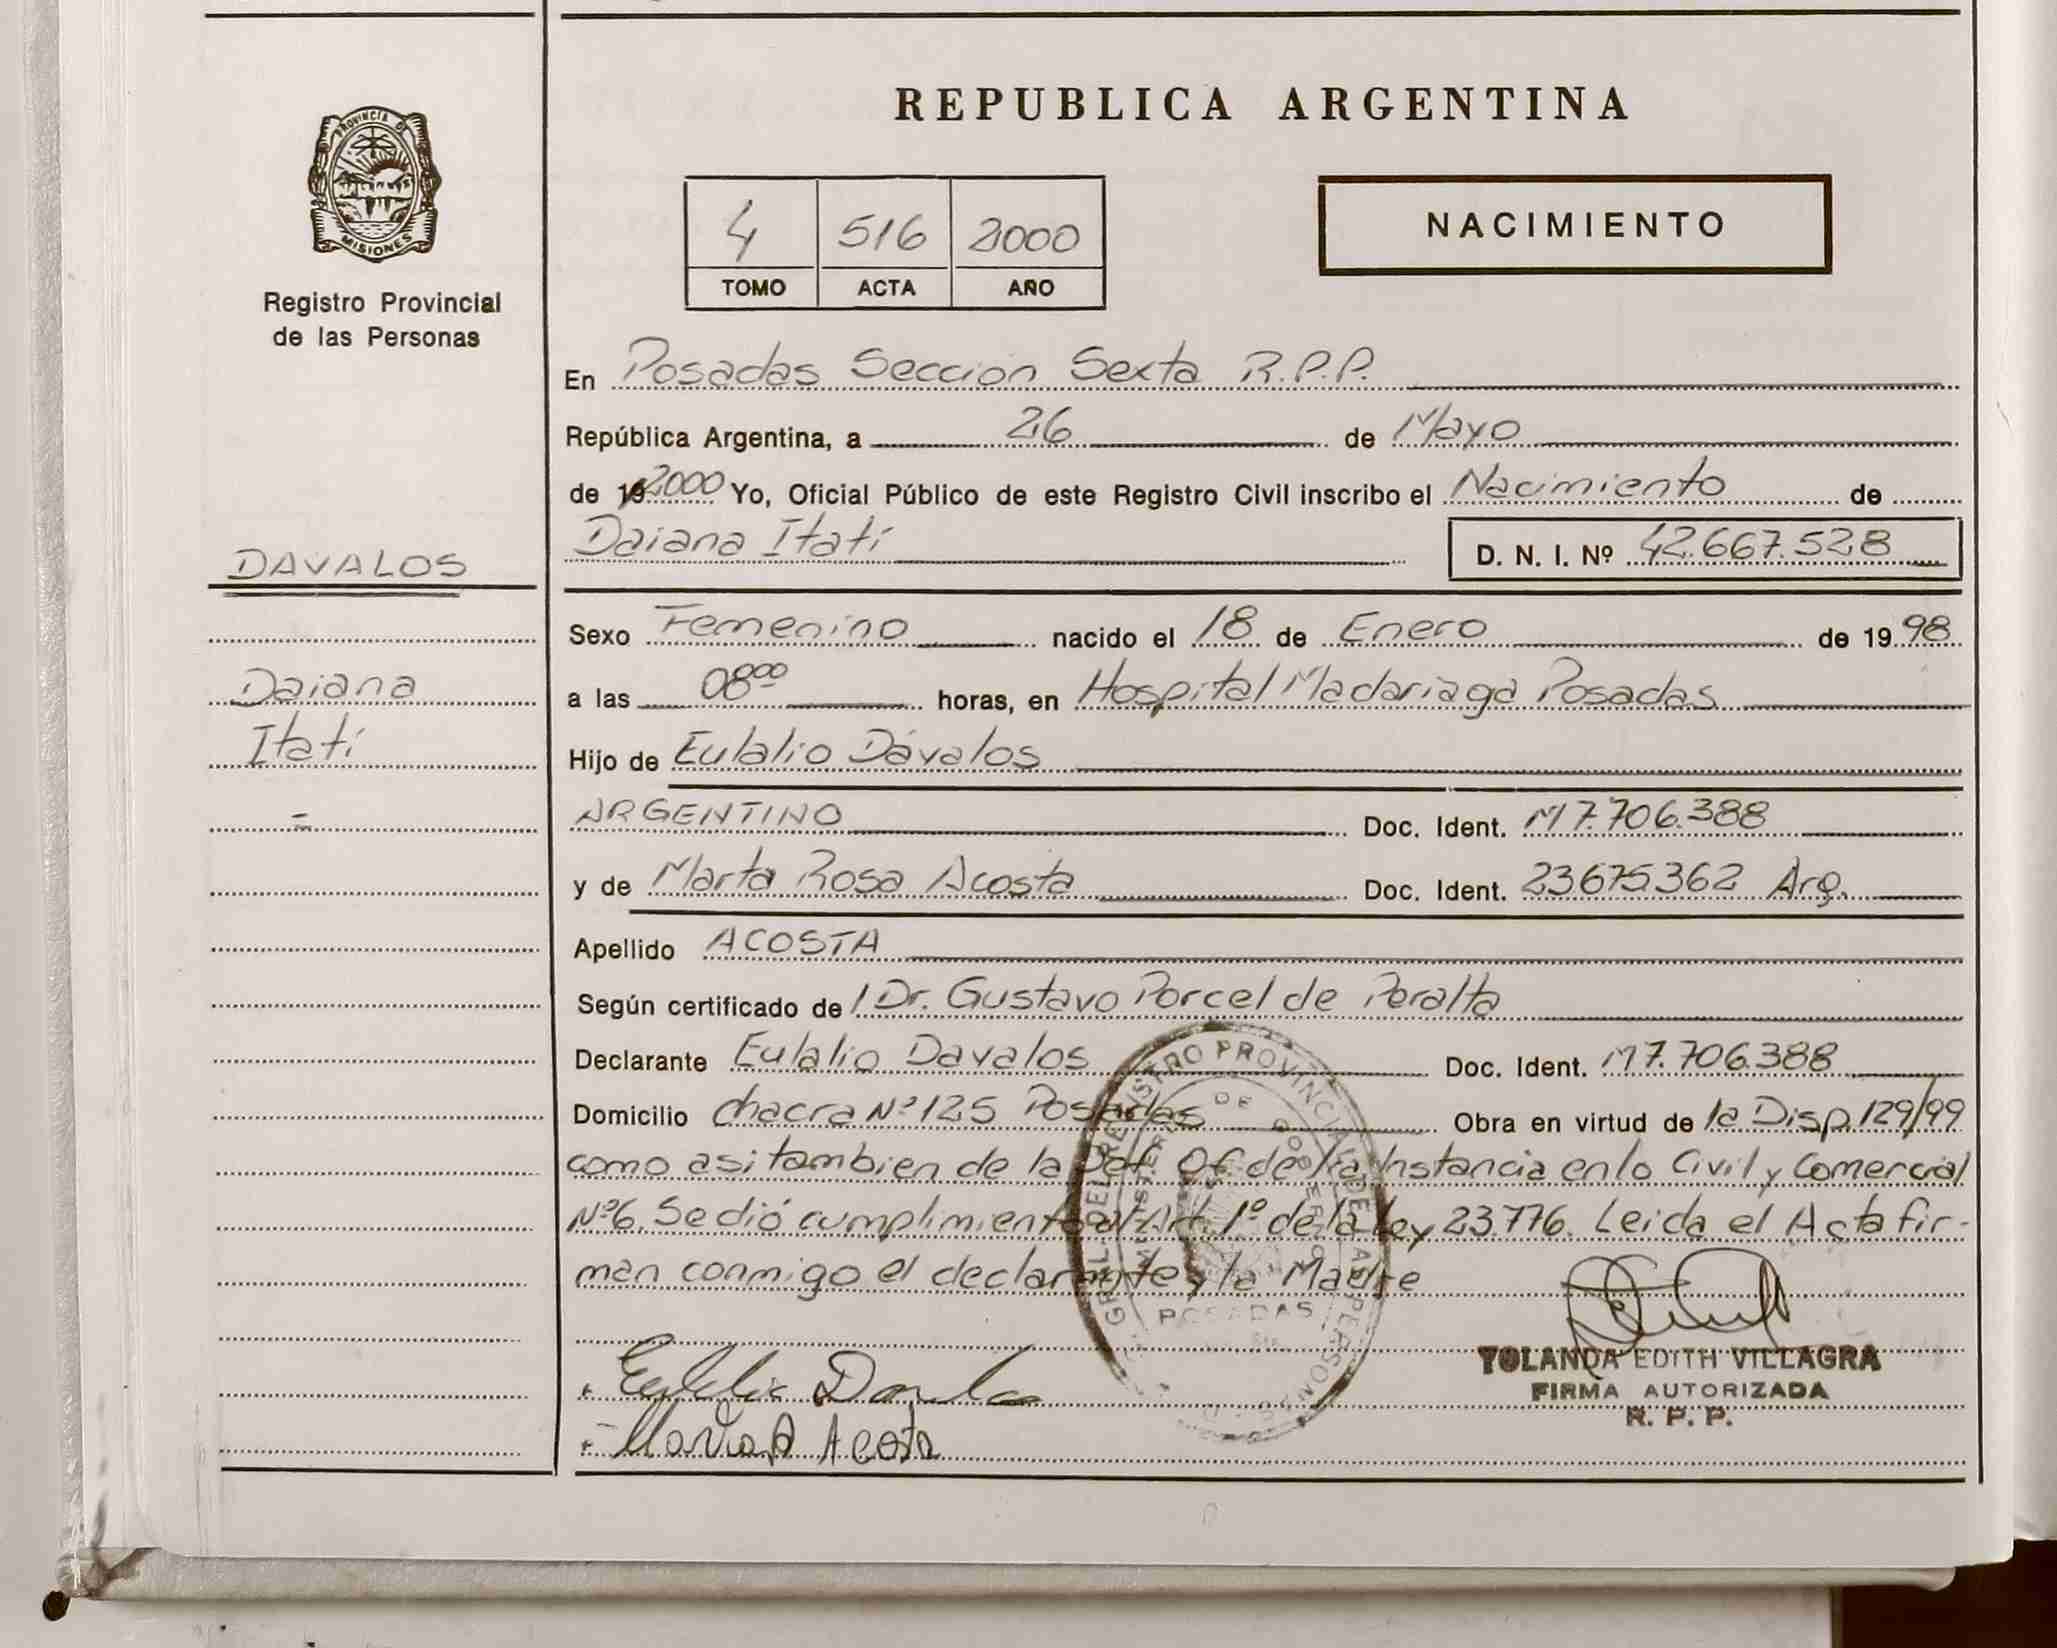 REPUBLICA ARGENTINA
PROVINCIA DE
MISIONES
Registro Provincial
de las Personas
4 516 2000
TOMO ACTA AÑO
NACIMIENTO
En Posadas Sección Sexta R.P.P.
República Argentina, a 26 de Mayo
de 19 2000 Yo, Oficial Público de este Registro Civil inscribo el Nacimiento de
Daiana Itatí D. N. I. Nº 42.667.528
DAVALOS
Sexo Femenino nacido el 18 de Enero de 1998
Daiana
a las 08⁰⁰ horas, en Hospital Madariaga Posadas
Itatí
Hijo de Eulalio Dávalos
ARGENTINO Doc. Ident. M7.706.388
y de Marta Rosa Acosta Doc. Ident. 23675362 Arg.
Apellido ACOSTA
Según certificado de l Dr. Gustavo Porcel de Peralta
Declarante Eulalio Davalos Doc. Ident. M7.706.388
Domicilio chacra Nº 125 Posadas Obra en virtud de la Disp. 129/99
como asi tambien de la Def. Of. de Instancia en lo Civil y Comercial
Nº6. Se dió cumplimiento al Art. 1º de la Ley 23.776. Leida el Acta fir-
man conmigo el declarante y la Madre
Eulalio Davalos
Acosta
YOLANDA EDITH VILLAGRA
FIRMA AUTORIZADA
R. P. P.
GRAL. DEL REGISTRO PROVINCIAL DE LAS PERSONAS
MINISTERIO DE GOBIERNO
POSADAS